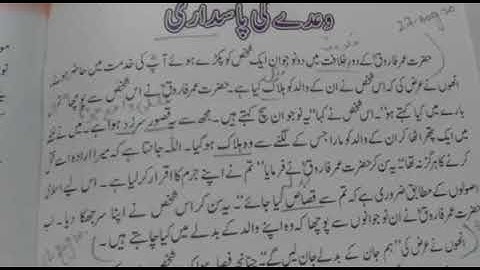 وعدے کی پاسداری
حضرت عمر فاروقؓ کے دورِ خلافت میں دو نوجوان ایک شخص کو پکڑے ہوئے آپؓ کی خدمت میں حاضر ہوئے۔
انھوں نے عرض کی کہ اس شخص نے ان کے والد کو ہلاک کیا ہے۔ حضرت عمر فاروقؓ نے اس شخص سے پوچھا
بارے میں کیا کہتے ہو“۔ اس شخص نے کہا ”یہ نوجوان سچ کہتے ہیں۔ مجھ سے یہ قصور سرزد ہوا ہے۔ میں نے غصے
میں ایک پتھر اٹھا کر ان کے والد کو مارا جس کے لگنے سے وہ ہلاک ہوگیا۔ اللہ جانتا ہے کہ میرا ارادہ اسے قتل
کرنے کا ہرگز نہ تھا“۔ یہ سن کر حضرت عمر فاروقؓ نے فرمایا ”تم نے اپنے جرم کا اقرار کرلیا ہے۔ اس لیے اسلامی
اصولوں کے مطابق ضروری ہے کہ تم سے قصاص لیا جائے“۔ یہ سن کر اس شخص نے اپنا سر جھکا دیا۔ اب
حضرت عمر فاروقؓ نے ان نوجوانوں سے پوچھا کہ وہ اپنے والد کے بدلے میں کیا چاہتے ہیں۔
انھوں نے عرض کی ”ہم جان کے بدلے جان لیں گے“۔ چنانچہ فیصلہ